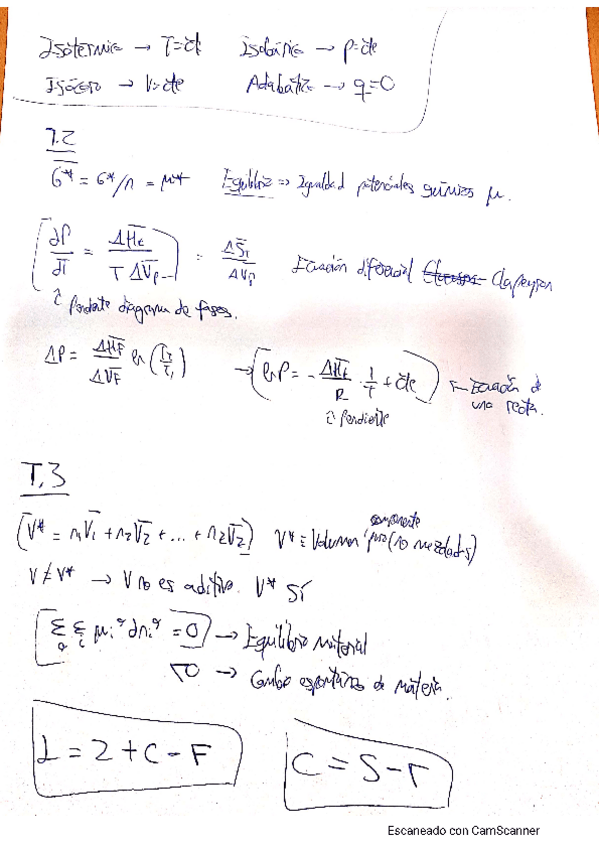 Isotermica → T=cte Isobárica → p=cte
Isócora → V=cte Adiabática → q=0
T.2
G* = G*/n = μ* Equilibrio ⇒ Igualdad potenciales químicos μ.
(dP/dT = ΔH̄_f / T ΔV̄_f) = ΔS̄_f / ΔV̄_f Ecuación diferencial Clapeyron
↑ Pendiente diagrama de fases.
ΔP = ΔH̄_F / ΔV̄_F ln (T₂/T₁) → (ln P = - ΔH̄_f / R · 1/T + cte) ← Ecuación de una recta.
↑ Pendiente
T.3
(V* = n₁V̄₁ + n₂V̄₂ + ... + n₂V̄₂) V* ≡ Volumen componente puro (no mezclados)
V ≠ V* → V no es aditivo. V* sí
[Σ_α Σ_i μ_i^α dn_i^α = 0] → Equilibrio material
<0 → Cambio espontáneo de materia.
L = 2 + C - F
C = S - r
Escaneado con CamScanner